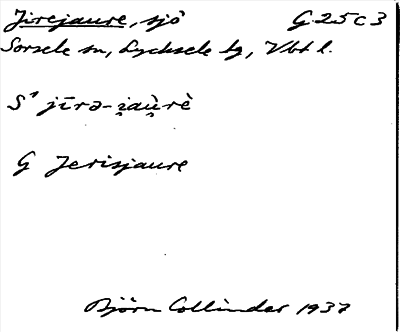 Jirejaure, sjö G 25 C 3
Sorsele sn, Lycksele lg, Vbt l.
S¹ jīrə-i̯au̯rè
G Jerisjaure
Björn Collinder 1937